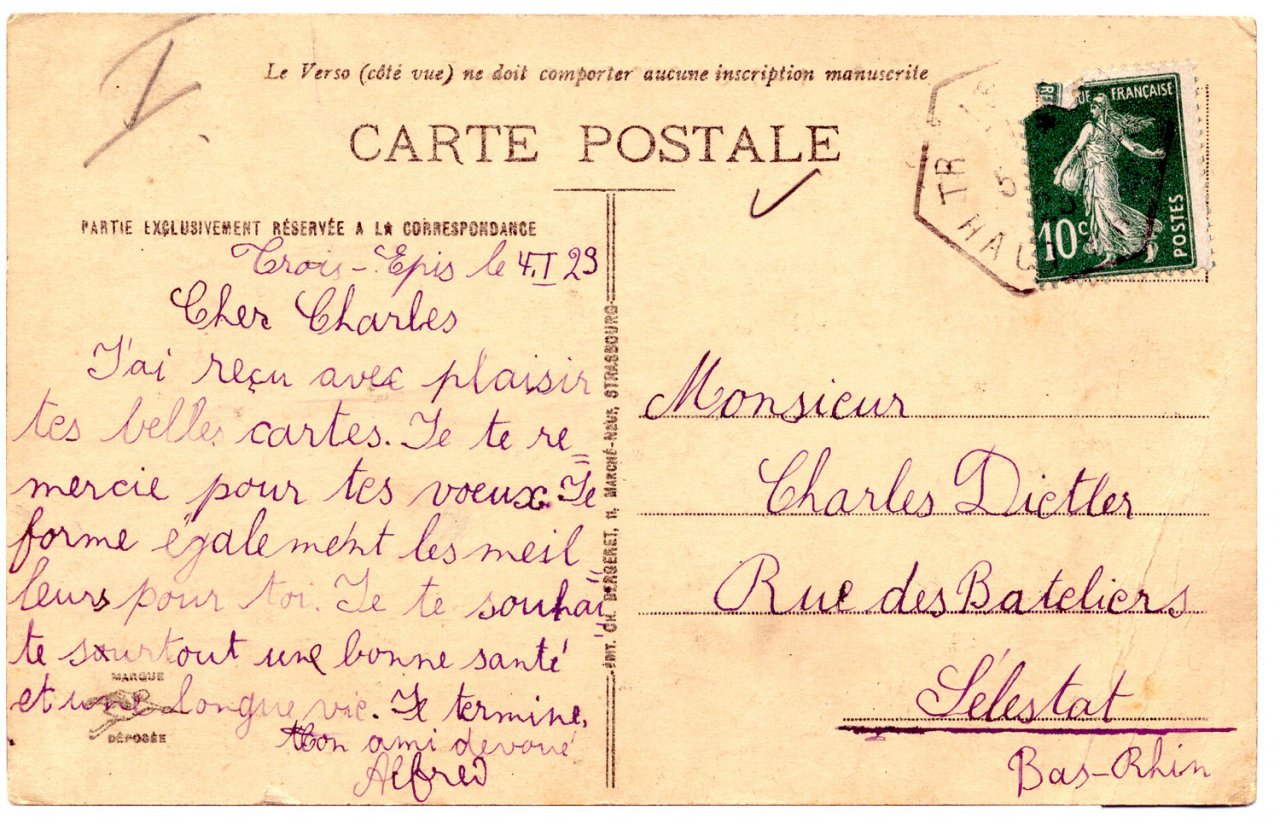 Le Verso (côté vue) ne doit comporter aucune inscription manuscrite
CARTE POSTALE
PARTIE EXCLUSIVEMENT RÉSERVÉE A LA CORRESPONDANCE
Trois-Epis le 4.I 23
Cher Charles
J'ai reçu avec plaisir
tes belles cartes. Je te re=
mercie pour tes voeux. Je
forme également les meil
leurs pour toi. Je te souhai
te surtout une bonne santé
et une longue vie. Je termine.
Ton ami devoué
Alfred
MARQUE
DÉPOSÉE
ÉDIT. CH. BERGERET, 11, MARCHÉ-NEUF, STRASBOURG
UE FRANÇAISE
10c
POSTES
TR
HAU
5
Monsieur
Charles Dietler
Rue des Bateliers
Sélestat
Bas-Rhin